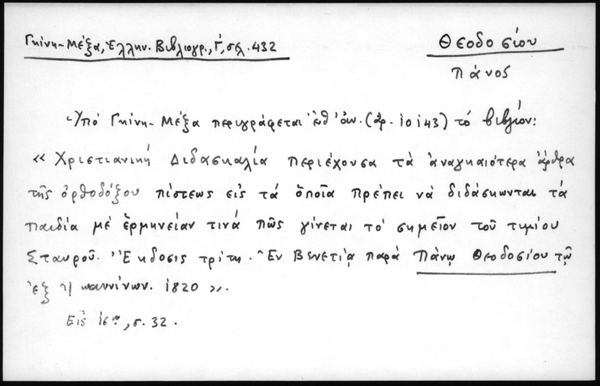 Γκίνη-Μέξα, Ἑλλην. Βιβλιογρ., Γ΄, σελ. 432
Θεοδοσίου
Πάνος
Ὑπό Γκίνη-Μέξα περιγράφεται ἐνθ' ἀν. (ἀρ. 10143) τό βιβλίον:
« Χριστιανική Διδασκαλία περιέχουσα τά ἀναγκαιότερα ἄρθρα
τῆς ὀρθοδόξου πίστεως εἰς τά ὁποῖα πρέπει νά διδάσκωνται τά
παιδία μέ ἑρμηνείαν τινά πῶς γίνεται τό σημεῖον τοῦ τιμίου
Σταυροῦ. Ἔκδοσις τρίτη. Ἐν Βενετίᾳ παρά Πάνῳ Θεοδοσίου τῷ
ἐξ Ἰωαννίνων. 1820 ».
Εἰς 16ον, σ. 32.